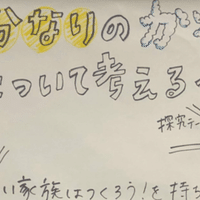 かなりの
ついて考える
探究テー
い家族はつくろう!を持ち